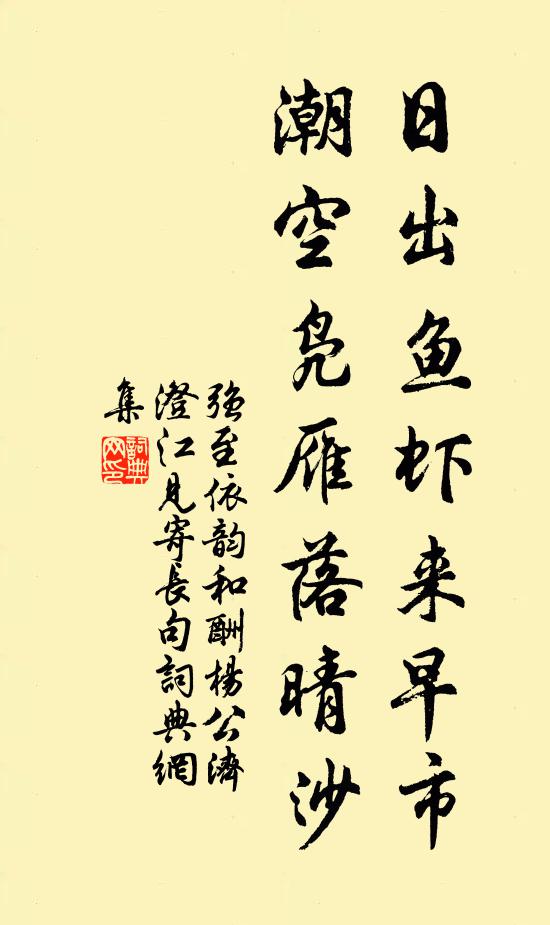 日出鱼虾来早市
潮空凫雁落晴沙
强至依韵和酬楊公濟
澄江見寄長句詞典網
集
詞典
网印